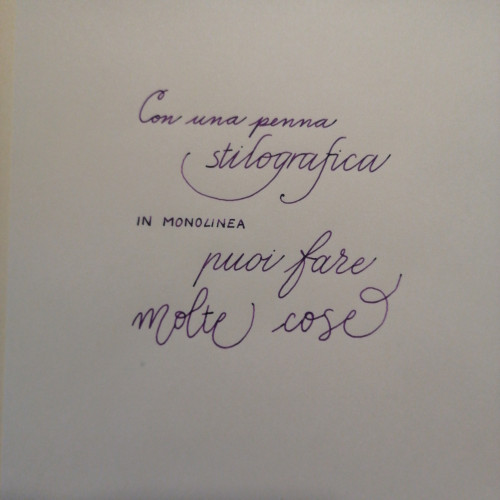 Con una penna
stilografica
IN MONOLINEA
puoi fare
molte cose